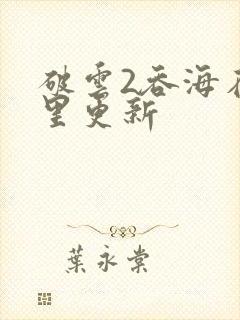 破雲2吞海
里更新
葉永棠